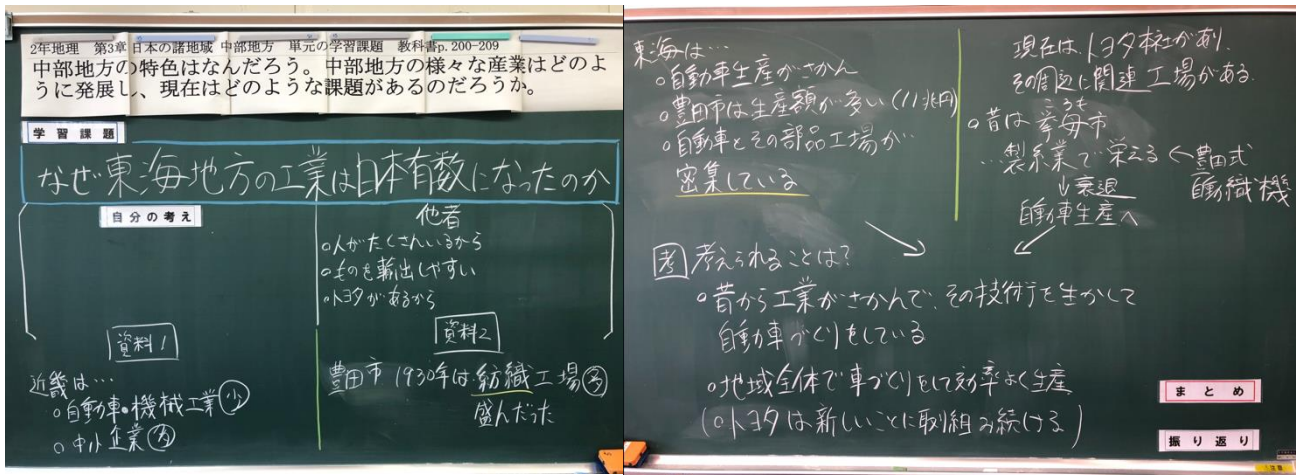 2年地理 第3章 日本の諸地域 中部地方 単元の学習課題 教科書p.200-209
中部地方の特色はなんだろう。中部地方の様々な産業はどのよ
うに発展し、現在はどのような課題があるのだろうか。
学習課題
なぜ東海地方の工業は日本有数になったのか
自分の考え
他者
○人がたくさんいるから
○ものを輸出しやすい
○トヨタがあるから
資料1
近畿は…
○自動車・機械工業少
○中小企業多
資料2
豊田市 1930年は紡織工場多
盛んだった
東海は…
○自動車生産がさかん
○豊田市は生産額が多い(11兆円)
○自動車とその部品工場が…
密集している
現在はトヨタ本社があり、
その周辺に関連工場がある。
ころも
○昔は挙母市
…製糸業で栄える ← 豊田式
自動織機
↓衰退
自動車生産へ
考 考えられることは?
○昔から工業がさかんで、その技術を生かして
自動車づくりをしている
○地域全体で車づくりをして効率よく生産
(○トヨタは新しいことに取組み続ける)
まとめ
振り返り